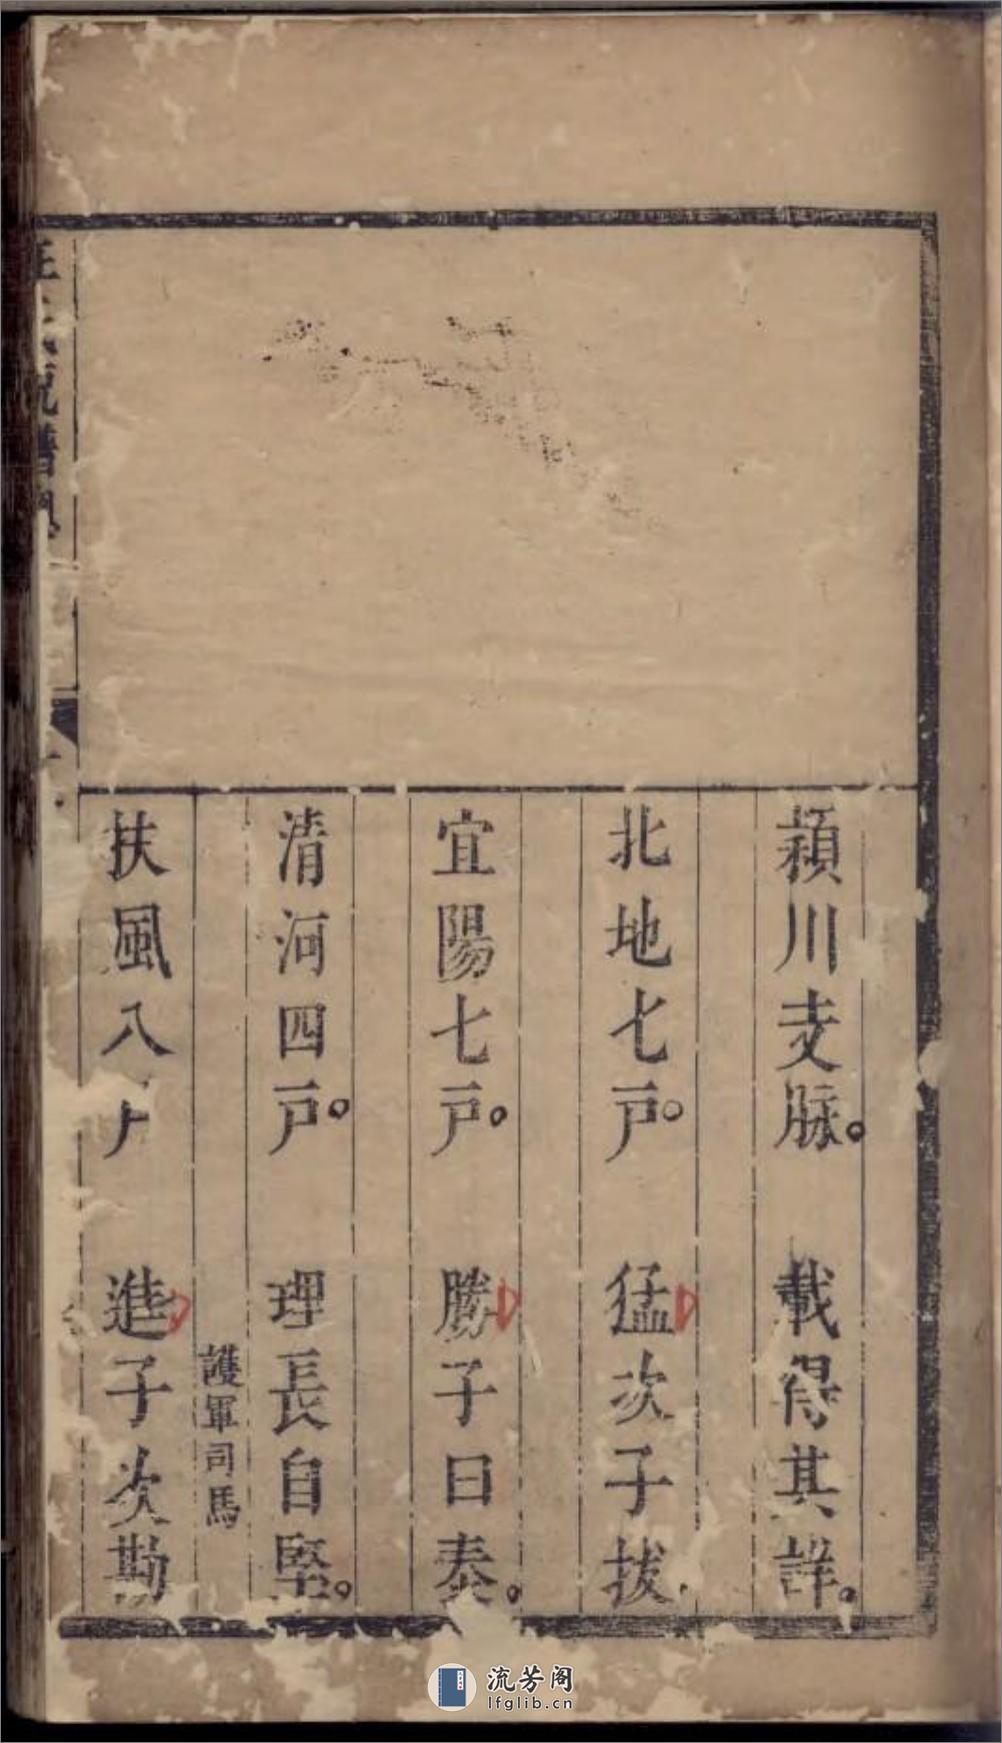 穎川支脉。載得其詳。
北地七戸。猛次子拔.
宜陽七戸。勝子曰泰。
清河四戸。理長自堅。
護軍司馬
扶風八戸 進子次勘
流芳阁
lfglib.cn